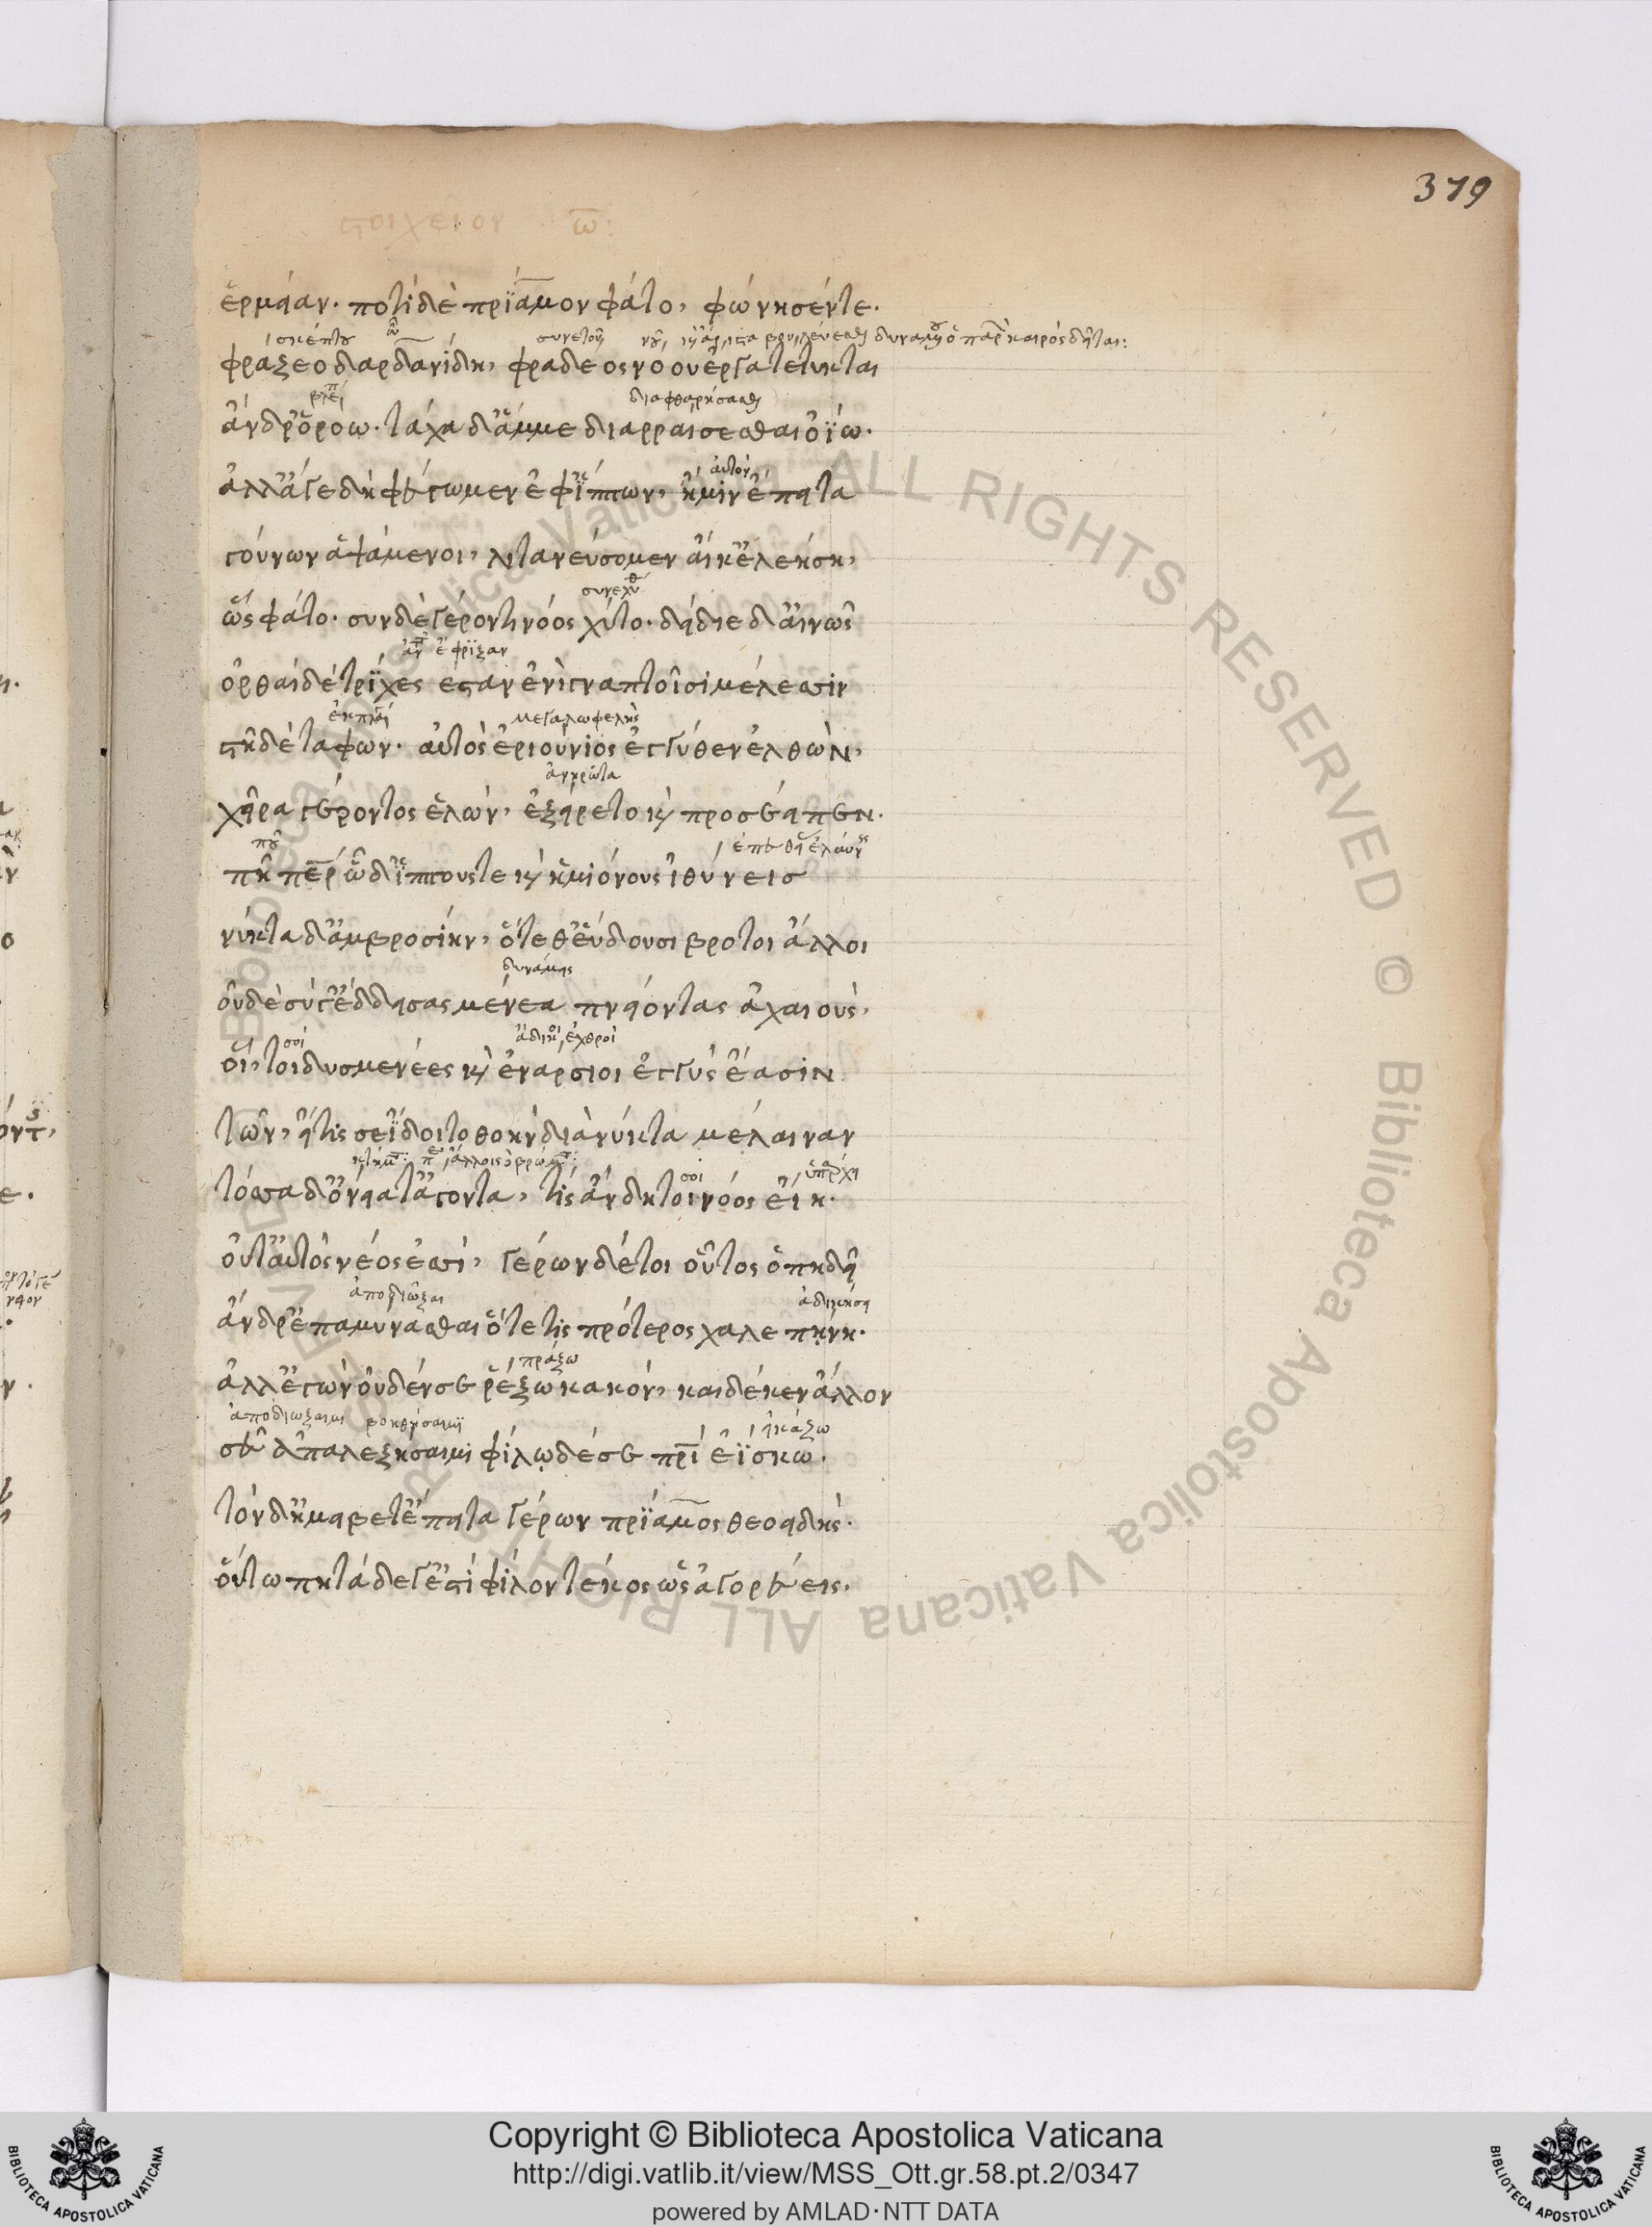 379
στοιχεῖον ω̅:
ἑρμείαν· ποτὶ δὲ πρίαμον φάτο, φώνησέν τε·
σκέπτου ὦ συνετοῦ
φράζεο δαρδανίδη, φραδέος νόου ἔργα τέτυκται
διαφθαρήσασθαι
ἄνδρ' ὁρόω· τάχα δ' ἄμμε διαρραίσεσθαι ὀΐω·
αὐτὸν
ἀλλ' ἄγε δὴ φεύγωμεν ἐφ' ἵππων, ἤ μιν ἔπειτα
γούνων ἁψάμενοι, λιτανεύσομεν αἴκ' ἐλεήση,
συνεχύθ
ὣς φάτο· σὺν δὲ γέροντι νόος χύτο· δείδιε δ' αἰνῶς
ἔφριξαν
ὀρθαὶ δὲ τρίχες ἔσταν ἐνὶ γναπτοῖσι μέλεσσιν
μεγαλωφελὴς
στῆ δὲ ταφών· αὐτὸς ἐριούνιος ἐγγύθεν ἐλθὼν,
ἀνηρώτα
χεῖρα γέροντος ἑλὼν, ἐξείρετο καὶ προσέειπεν·
ποῦ
πῆ πάτερ ὧδ' ἵππους τε καὶ ἡμιόνους ἰθύνεισ
νύκτα δι' ἀμβροσίην, ὅτε θ' εὕδουσι βροτοὶ ἄλλοι
δυνάμεις
οὐδὲ σύ γ' ἔδδεισας μένεα πνείοντας ἀχαιοὺς,
σοι ἄδικοι, ἐχθροὶ
οἵ τοι δυσμενέες καὶ ἐνάρσιοι ἐγγὺς ἔασιν
τῶν, εἴ τις σε ἴδοιτο θοὴν διὰ νύκτα μέλαιναν
σοι ὑπάρχει
τόσσα δ' ὀνείατ' ἄγοντα, τίς ἂν δή τοι νόος εἴη·
οὔτ' αὐτὸς νέος ἐσσὶ, γέρων δέ τοι οὗτος ὀπηδεῖ
ἀποδιῶξαι ἀδικήση
ἄνδρ' ἐπαμύνασθαι ὅτε τις πρότερος χαλεπήνη·
πράξω
ἀλλ' ἐγὼ οὐδέν σε ῥέξω κακὸν, καὶ δέ κεν ἄλλον
ἀποδιώξαιμι βοηθήσαιμι εἰκάζω
σεῦ ἀπαλεξήσαιμι φίλω δέ σε πατρὶ ἐΐσκω·
τὸν δ' ἠμείβετ' ἔπειτα γέρων πρίαμος θεοειδής·
οὕτω πη τάδε γ' ἐστὶ φίλον τέκος ὡς ἀγορεύεις·
Copyright © Biblioteca Apostolica Vaticana
http://digi.vatlib.it/view/MSS_Ott.gr.58.pt.2/0347
powered by AMLAD·NTT DATA
BIBLIOTECA APOSTOLICA VATICANA
BIBLIOTECA APOSTOLICA VATICANA
Biblioteca Apostolica Vaticana ALL RIGHTS RESERVED ©